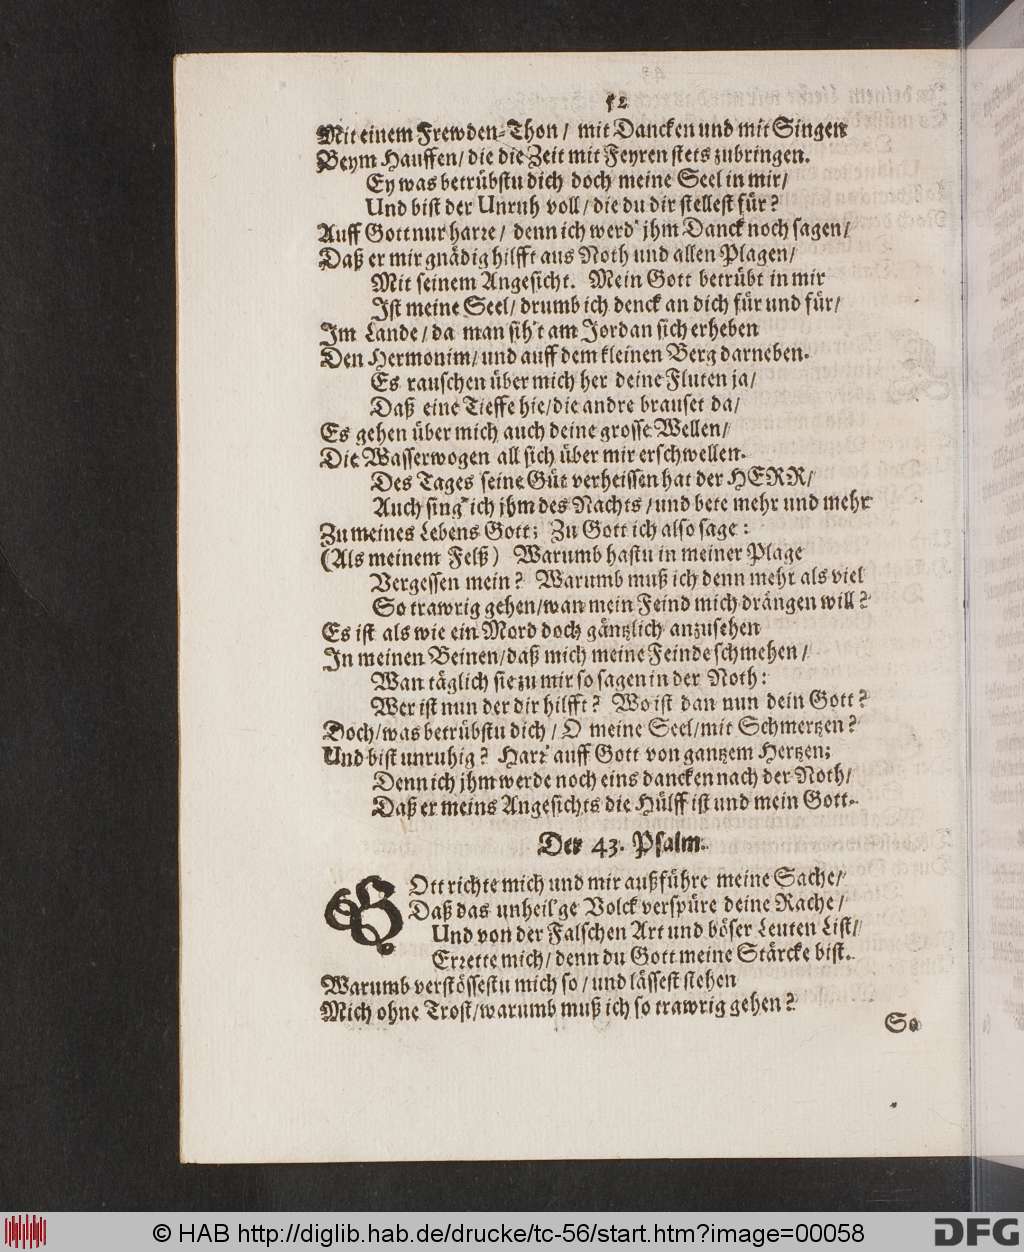 52
Mit einem Frewden-Thon / mit Dancken und mit Singen
Beym Hauffen / die die Zeit mit Feyren stets zubringen.
Ey was betrübstu dich doch meine Seel in mir /
Und bist der Unruh voll / die du dir stellest für?
Auff Gott nur harre / denn ich werd' jhm Danck noch sagen /
Daß er mir gnädig hilfft aus Noth und allen Plagen /
Mit seinem Angesicht. Mein Gott betrübt in mir
Ist meine Seel / drumb ich denck an dich für und für /
Im Lande / da man sih't am Jordan sich erheben
Den Hermonim / und auff dem kleinen Berg darneben.
Es rauschen über mich her deine Fluten ja /
Daß eine Tieffe hie / die andre brauset da /
Es gehen über mich auch deine grosse Wellen /
Die Wasserwogen all sich über mir erschwellen.
Des Tages seine Güt verheissen hat der HERR /
Auch sing' ich jhm des Nachts / und bete mehr und mehr
Zu meines Lebens Gott; Zu Gott ich also sage:
(Als meinem Felß) Warumb hastu in meiner Plage
Vergessen mein? Warumb muß ich denn mehr als viel
So trawrig gehen / wan mein Feind mich drängen will?
Es ist als wie ein Mord doch gäntzlich anzusehen
In meinen Beinen / daß mich meine Feinde schmehen /
Wan täglich sie zu mir so sagen in der Noth:
Wer ist nun der dir hilfft? Wo ist dan nun dein Gott?
Doch / was betrübstu dich / O meine Seel / mit Schmertzen?
Und bist unruhig? Harr' auff Gott von gantzem Hertzen;
Denn ich jhm werde noch eins dancken nach der Noth /
Daß er meins Angesichts die Hülff ist und mein Gott.
Der 43. Psalm.
GOtt richte mich und mir außführe meine Sache /
Daß das unheil'ge Volck verspüre deine Rache /
Und von der Falschen Art und böser Leuten List /
Errette mich / denn du Gott meine Stärcke bist.
Warumb verstössestu mich so / und lässest stehen
Mich ohne Trost / warumb muß ich so trawrig gehen?
So
© HAB http://diglib.hab.de/drucke/tc-56/start.htm?image=00058
DFG